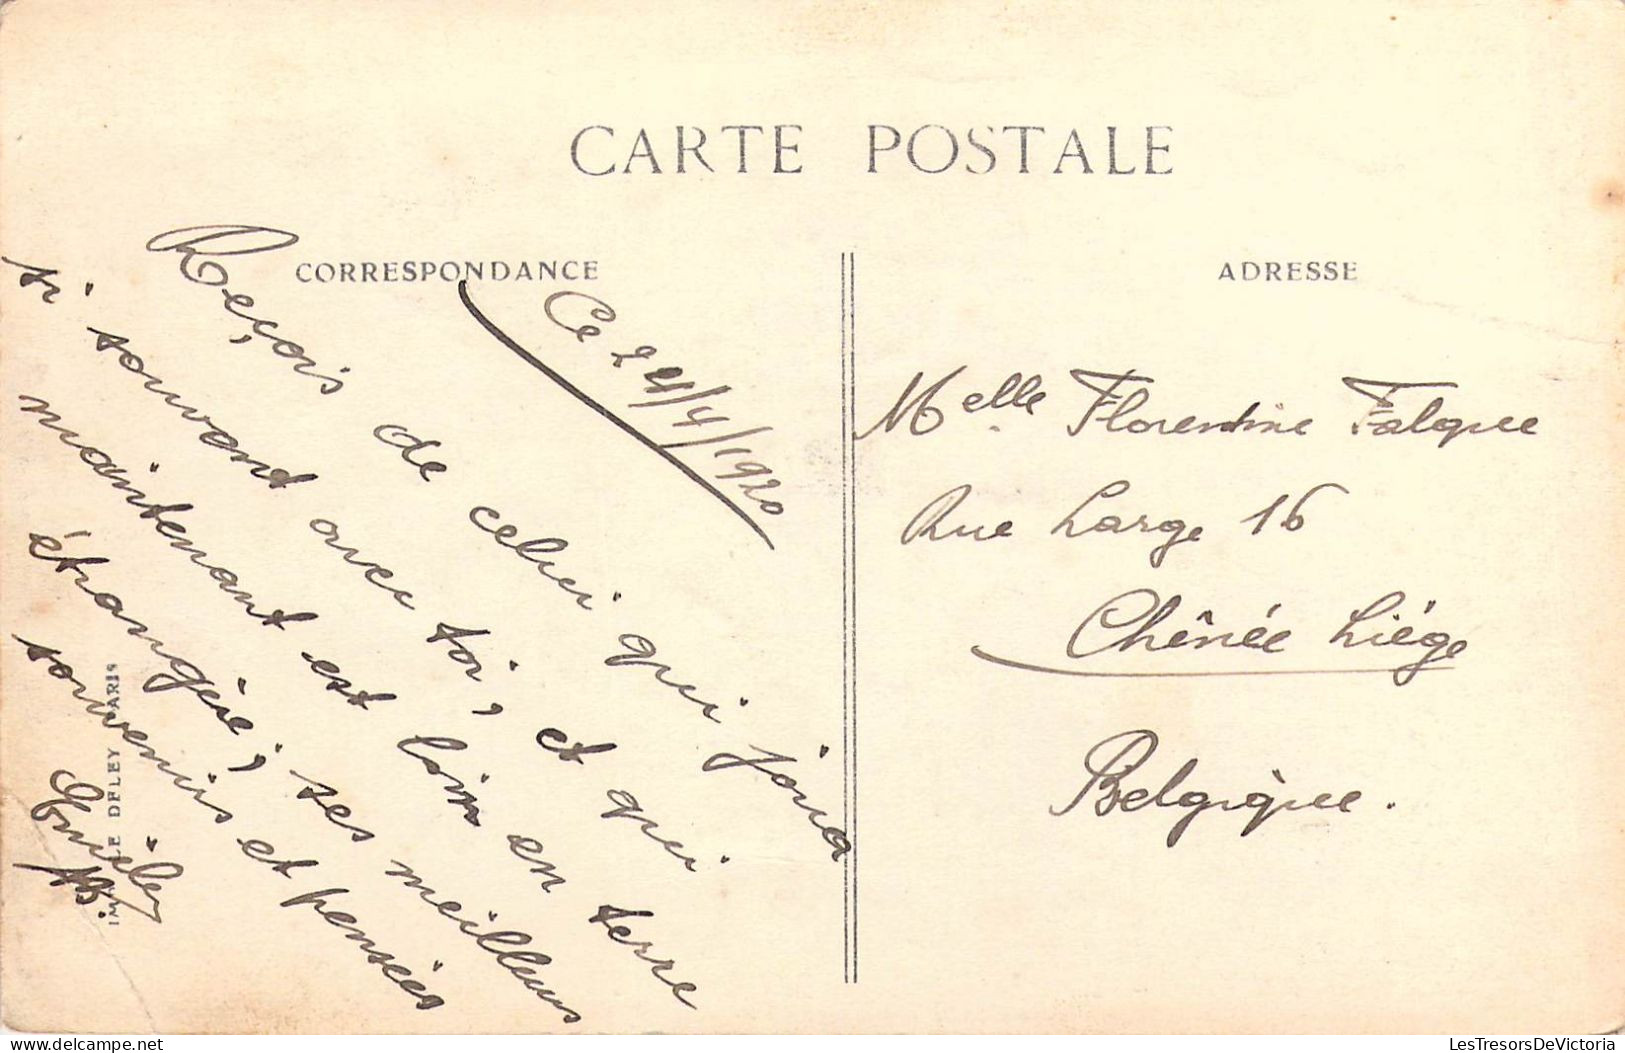 CARTE POSTALE
CORRESPONDANCE
ADRESSE
Ce 24/4/1920
Reçois de celui qui joua
si souvent avec toi, et qui
maintenant est loin en terre
étrangère, ses meilleurs
souvenirs et pensées
Melle Florentine Falque
Rue Large 16
Chênée Liége
Belgique.
LE DELEY PARIS
LesTresorsDeVictoria